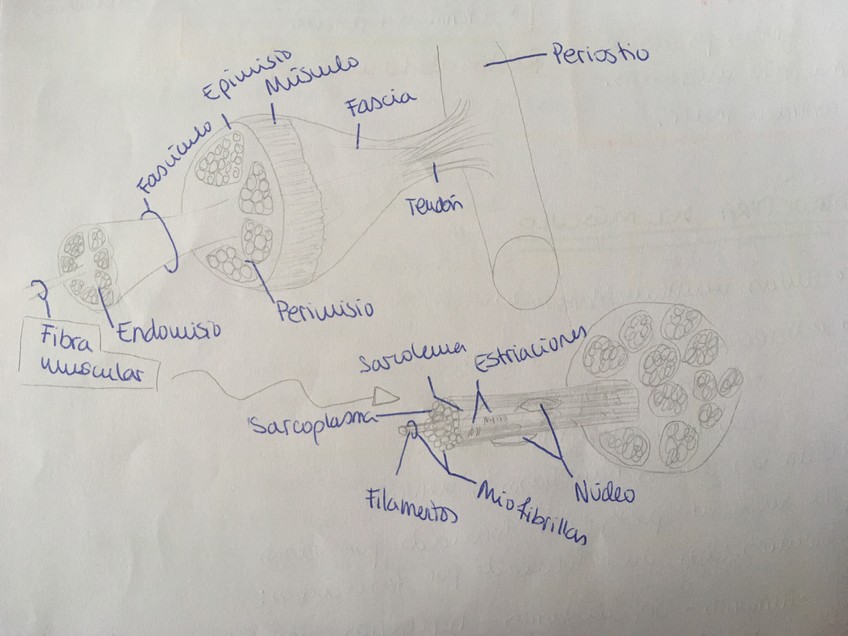 Periostio
Epimisio
Músculo
Fascia
Fascículo
Tendón
Perimisio
Endomisio
Fibra
muscular
Sarcolema
Estriaciones
Sarcoplasma
Filamentos
Miofibrillas
Núcleo